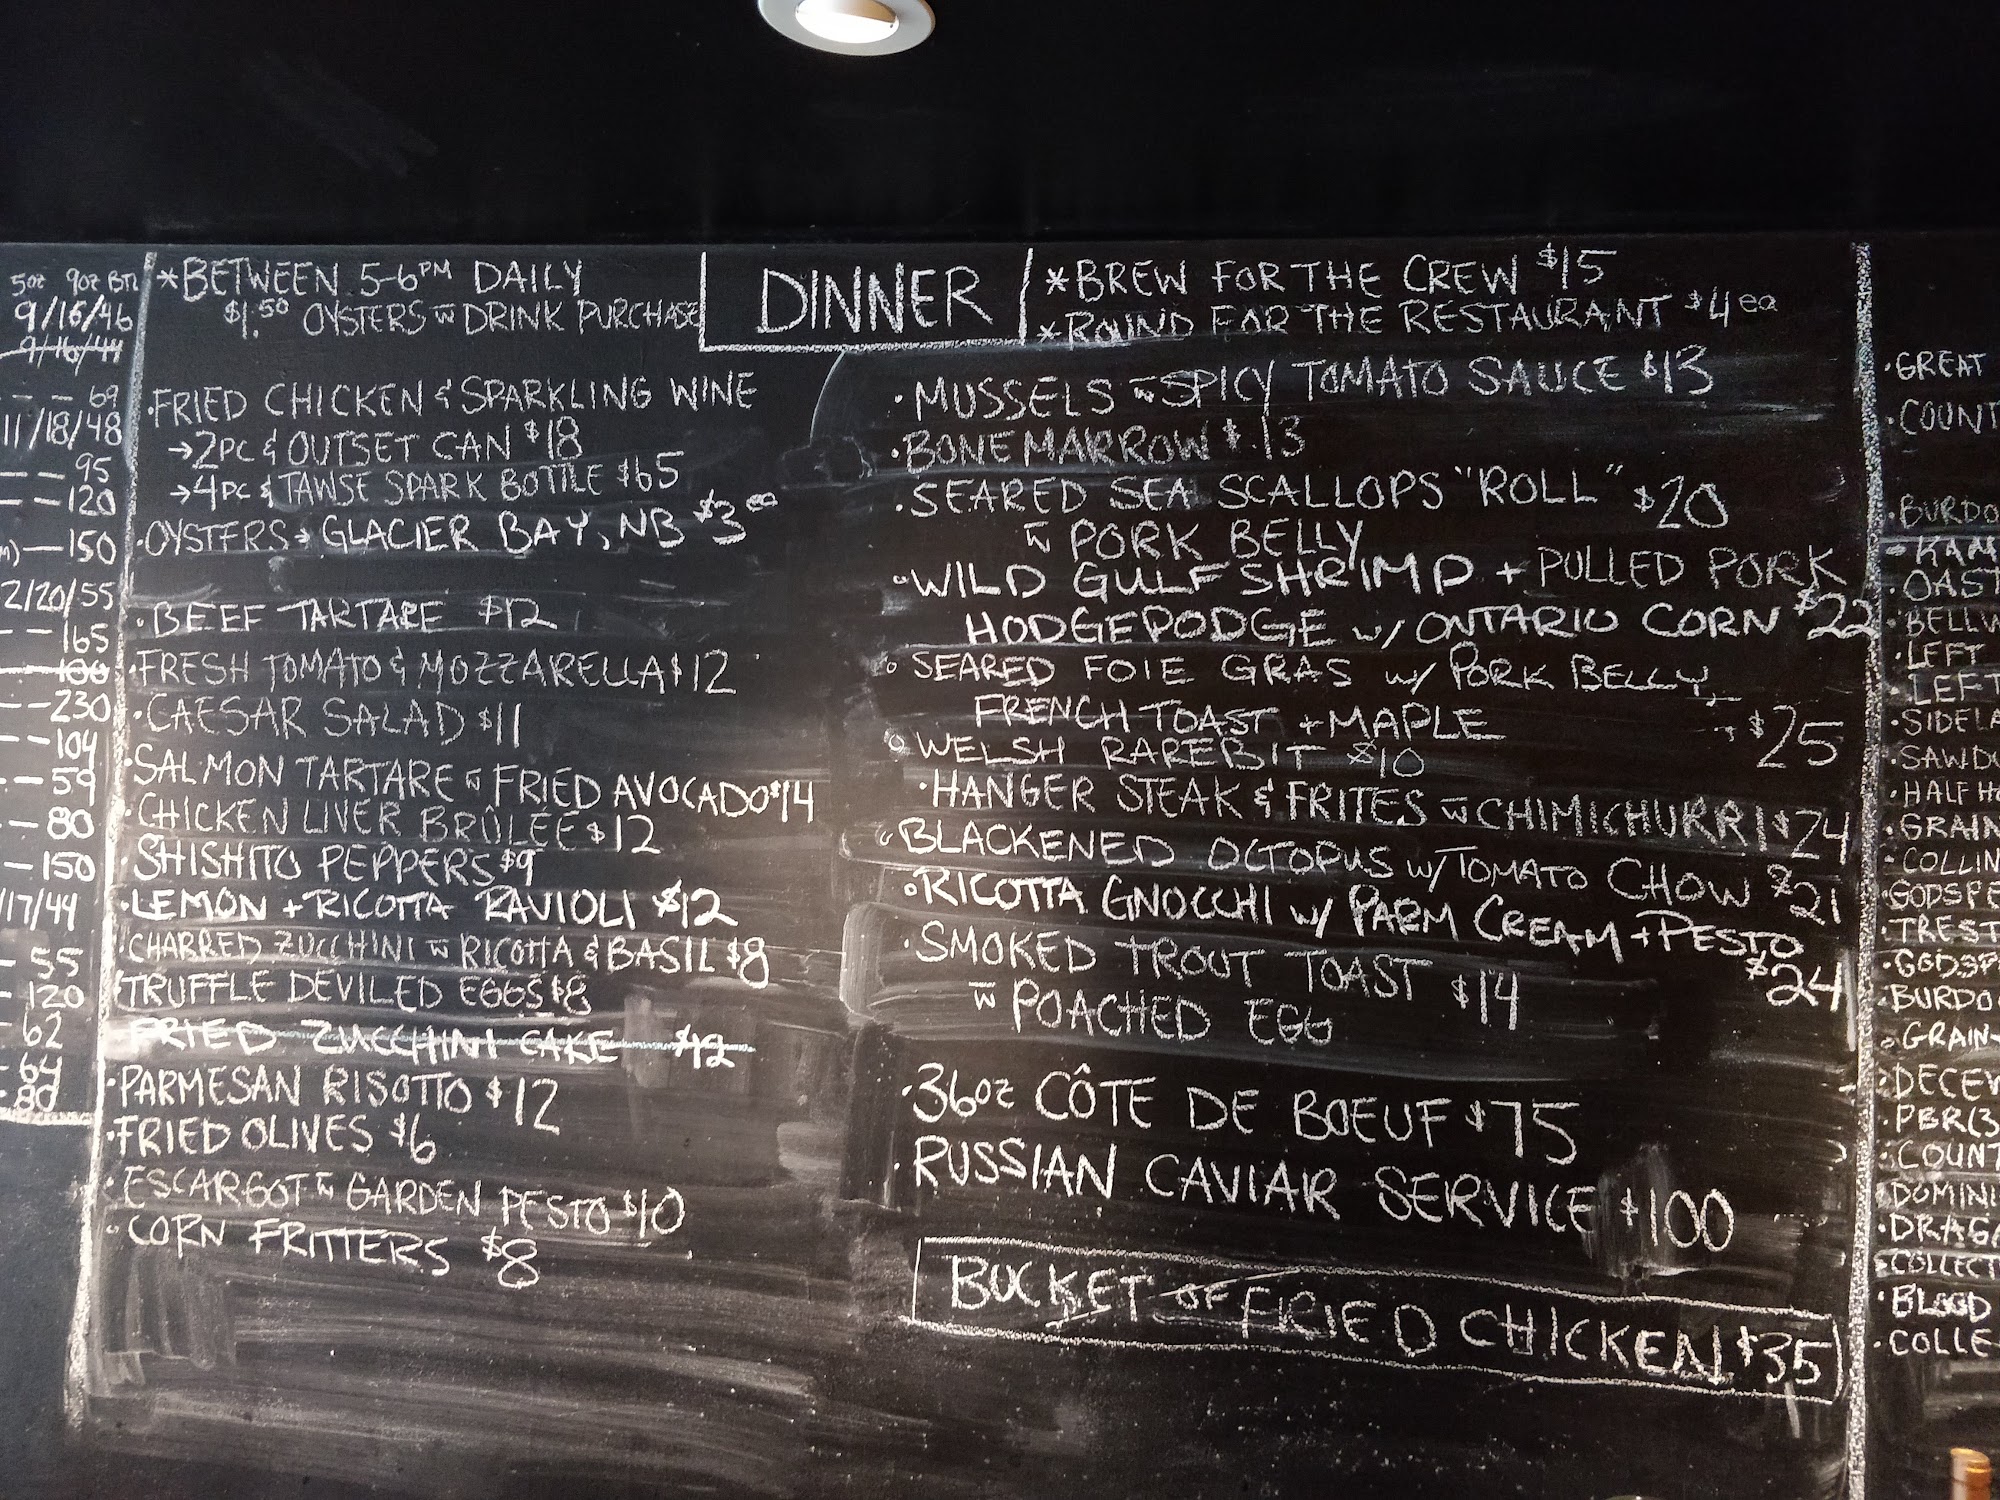 5oz 9oz BTL
9/16/46
9/16/44
- - 69
11/18/48
-- 95
-- 120
- 150
2/20/55
-- 165
-- 100
-- 230
-- 104
- 59
-- 80
- 150
/17/44
- 55
- 120
- 62
- 64
- 80
*BETWEEN 5-6PM DAILY
$1.50 OYSTERS w̄ DRINK PURCHASE
DINNER
*BREW FOR THE CREW $15
*ROUND FOR THE RESTAURANT $4ea
·FRIED CHICKEN & SPARKLING WINE
→2PC & OUTSET CAN $18
→4PC & TAWSE SPARK BOTTLE $65
·OYSTERS → GLACIER BAY, NB $3ea
·BEEF TARTARE $12
·FRESH TOMATO & MOZZARELLA $12
·CAESAR SALAD $11
·SALMON TARTARE w̄ FRIED AVOCADO $14
·CHICKEN LIVER BRÛLÉE $12
·SHISHITO PEPPERS $9
·LEMON + RICOTTA RAVIOLI $12
·CHARRED ZUCCHINI w̄ RICOTTA & BASIL $8
·TRUFFLE DEVILED EGGS $8
FRIED ZUCCHINI CAKE $12
·PARMESAN RISOTTO $12
·FRIED OLIVES $6
·ESCARGOT w̄ GARDEN PESTO $10
·CORN FRITTERS $8
·MUSSELS w̄ SPICY TOMATO SAUCE $13
·BONE MARROW $13
·SEARED SEA SCALLOPS "ROLL" $20
w̄ PORK BELLY
·WILD GULF SHRIMP + PULLED PORK
HODGEPODGE w/ ONTARIO CORN $22
·SEARED FOIE GRAS w/ PORK BELLY,
FRENCH TOAST + MAPLE $25
·WELSH RAREBIT $10
·HANGER STEAK & FRITES w̄ CHIMICHURRI $24
·BLACKENED OCTOPUS w/ TOMATO CHOW $21
·RICOTTA GNOCCHI w/ PARM CREAM + PESTO
$24
·SMOKED TROUT TOAST $14
w̄ POACHED EGG
·36oz CÔTE DE BOEUF $75
·RUSSIAN CAVIAR SERVICE $100
BUCKET OF FRIED CHICKEN $35
·GREAT
·COUNT
·BURDO
·KAM
·OAST
·BELLW
·LEFT
·LEFT
·SIDELA
·SAWDU
·HALF H
·GRAIN
·COLLIN
·GODSPE
·TREST
·GODSP
·BURDO
·GRAIN
·DECEW
·PBR(3
·COUNT
·DOMINI
·DRAG
·COLLECT
·BLOOD
·COLLE